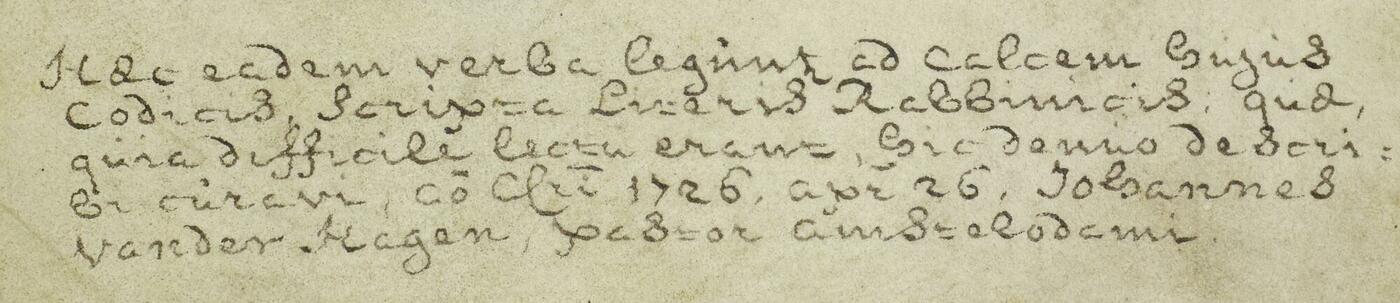 Hæc eadem verba legunt ad calcem hujus
Codicis, scripta Literis Rabbinicis, quæ,
quia difficile lectu erant, hic denuo descri:
bi curavi, aō Chrī 1726. apr 26, Johannes
vander Hagen, pastor Amstelodami.